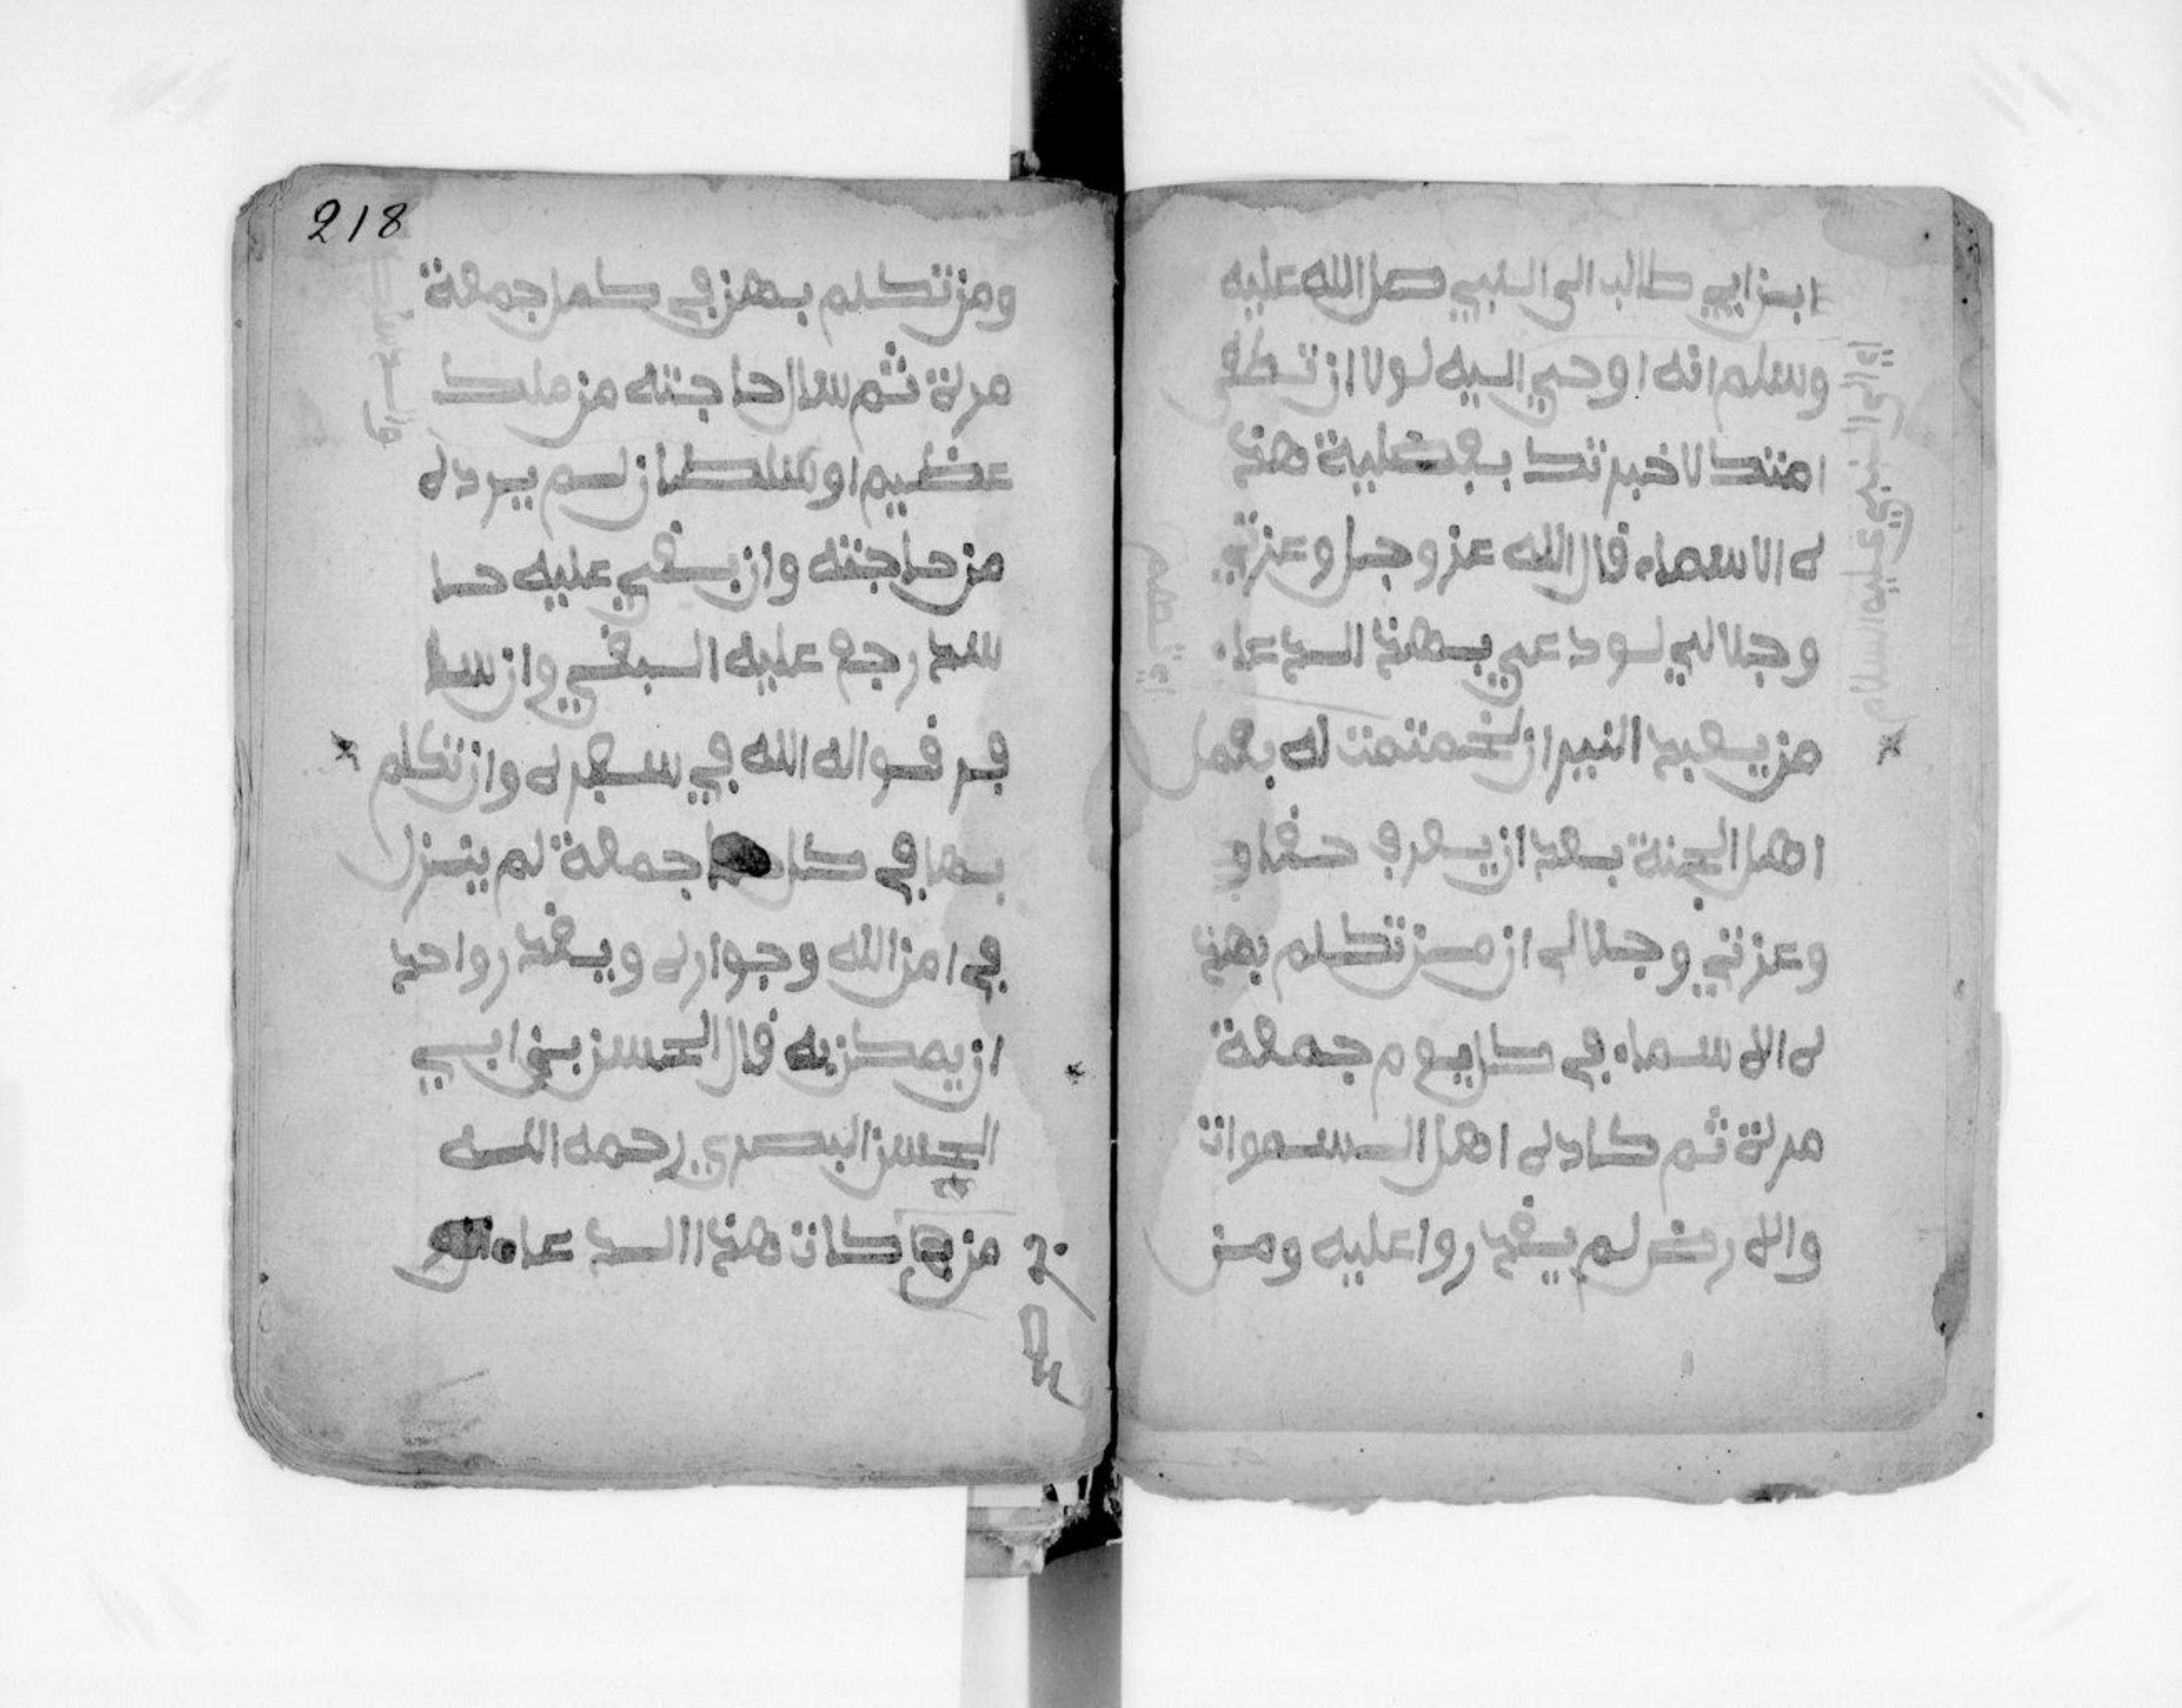 ابن ابي طالب الى النبي صل الله عليه
وسلم انه اوحي اليه لولا ان تطغى
امتك لاخبرتك بفضلية هذ
ه الاسماء قال الله عز وجل وعزتي
وجلالي لو دعي بهذ الدعاء
من يعبد النيران لختمت له بعمل
اهل الجنة بعد ان يعرف حقا و
وعزتي وجلاله ان من تكلم بهذ
ه الاسماء في كل يوم جمعة
مرة ثم كاده اهل السموات
والارض لم يقدروا عليه ومن
اي الى النبي عليه السلام
218
ومن تكلم بهن في كل جمعة
مرة ثم سال حاجته من ملك
عظيم او سلطان لم يرده
من حاجته وان بغي عليه حا
سد رجع عليه البغي وان سا
فر قواه الله في سفره وان تكلم
بها في كل جمعة لم ينزل
في امن الله وجواره ويقد روا حد
ان يمكر به قال الحسن بن ابي
الحسن البصري رحمه الله
من كان هذا الدعاء